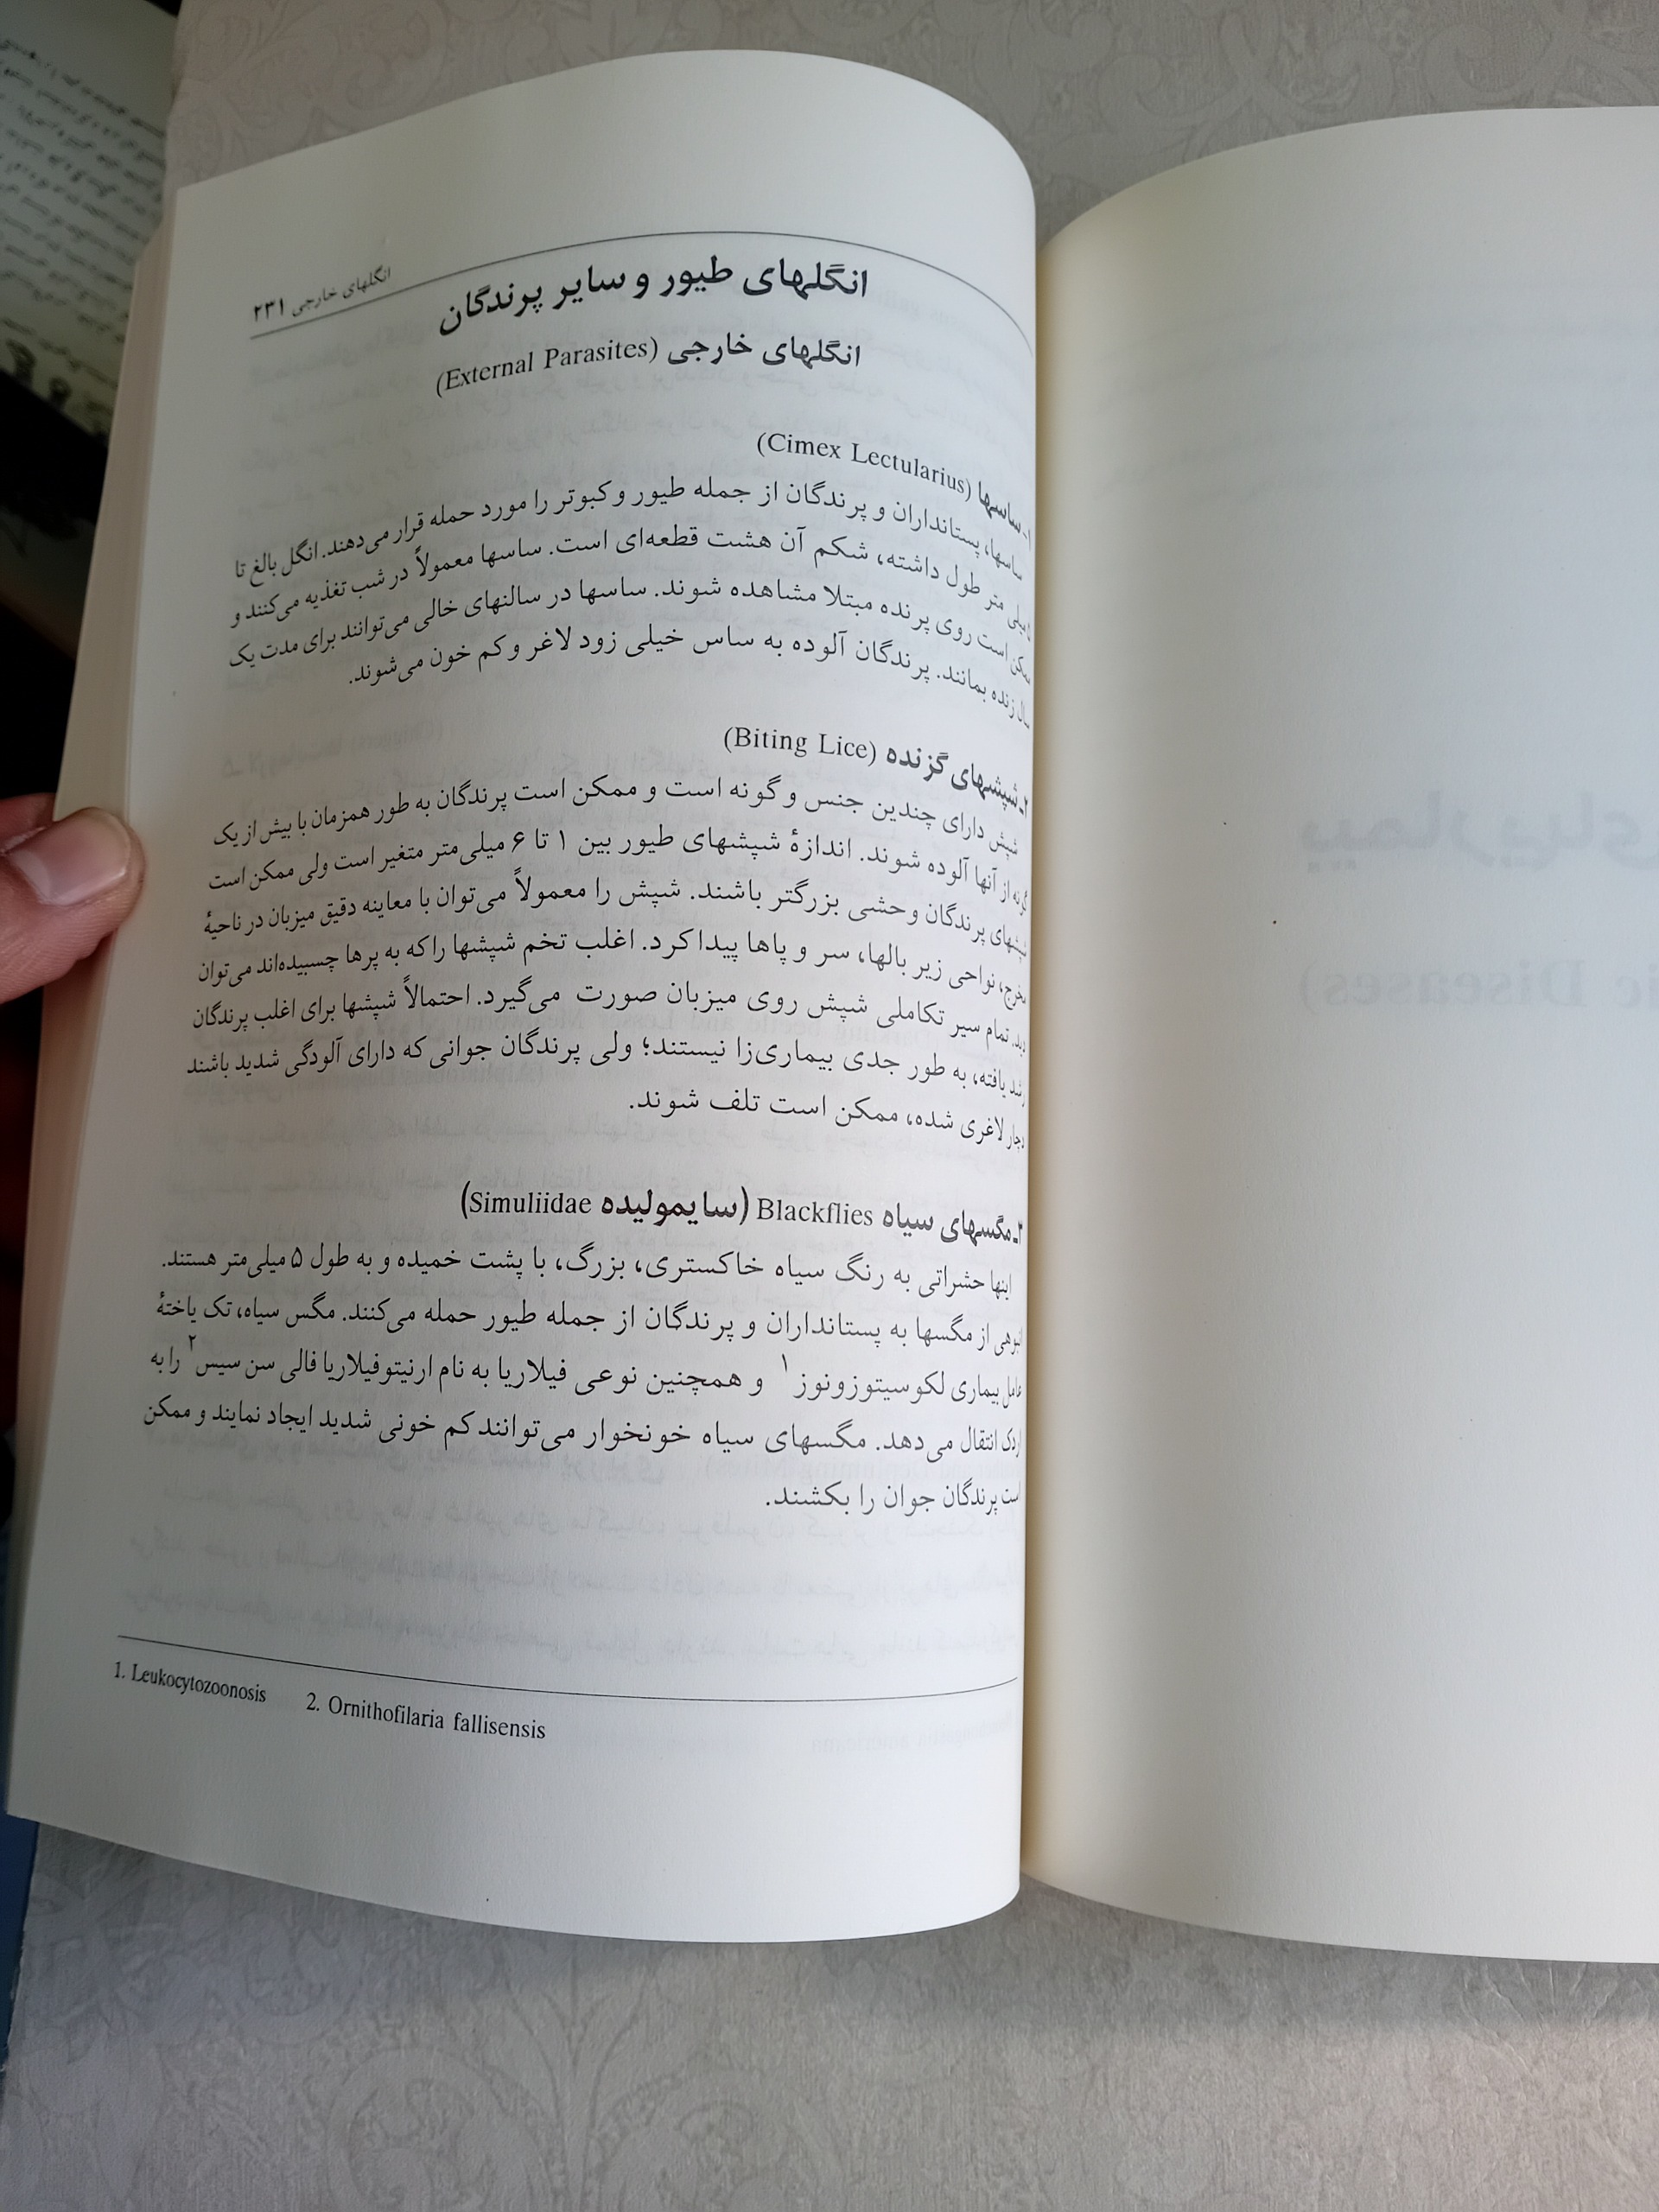 انگلهای خارجی ۲۳۱
انگلهای طیور و سایر پرندگان
انگلهای خارجی (External Parasites)
۱- ساسها (Cimex Lectularius)
ساسها، پستانداران و پرندگان از جمله طیور و کبوتر را مورد حمله قرار می‌دهند. انگل بالغ تا
میلی متر طول داشته، شکم آن هشت قطعه‌ای است. ساسها معمولاً در شب تغذیه می‌کنند و
ممکن است روی پرنده مبتلا مشاهده شوند. ساسها در سالنهای خالی می‌توانند برای مدت یک
سال زنده بمانند. پرندگان آلوده به ساس خیلی زود لاغر و کم خون می‌شوند.
۲- شپشهای گزنده (Biting Lice)
شپش دارای چندین جنس و گونه است و ممکن است پرندگان به طور همزمان با بیش از یک
گونه از آنها آلوده شوند. اندازهٔ شپشهای طیور بین ۱ تا ۶ میلی‌متر متغیر است ولی ممکن است
شپشهای پرندگان وحشی بزرگتر باشند. شپش را معمولاً می‌توان با معاینه دقیق میزبان در ناحیهٔ
مخرج، نواحی زیر بالها، سر و پاها پیدا کرد. اغلب تخم شپشها را که به پرها چسبیده‌اند می‌توان
دید. تمام سیر تکاملی شپش روی میزبان صورت می‌گیرد. احتمالاً شپشها برای اغلب پرندگان
رشد یافته، به طور جدی بیماری‌زا نیستند؛ ولی پرندگان جوانی که دارای آلودگی شدید باشند
دچار لاغری شده، ممکن است تلف شوند.
۳- مگسهای سیاه Blackflies (سایمولیده Simuliidae)
اینها حشراتی به رنگ سیاه خاکستری، بزرگ، با پشت خمیده و به طول ۵ میلی‌متر هستند.
انبوهی از مگسها به پستانداران و پرندگان از جمله طیور حمله می‌کنند. مگس سیاه، تک یاختهٔ
عامل بیماری لکوسیتوزونوز۱ و همچنین نوعی فیلاریا به نام ارنیتوفیلاریا فالی سن سیس۲ را به
اردک انتقال می‌دهد. مگسهای سیاه خونخوار می‌توانند کم خونی شدید ایجاد نمایند و ممکن
است پرندگان جوان را بکشند.
1. Leukocytozoonosis 2. Ornithofilaria fallisensis